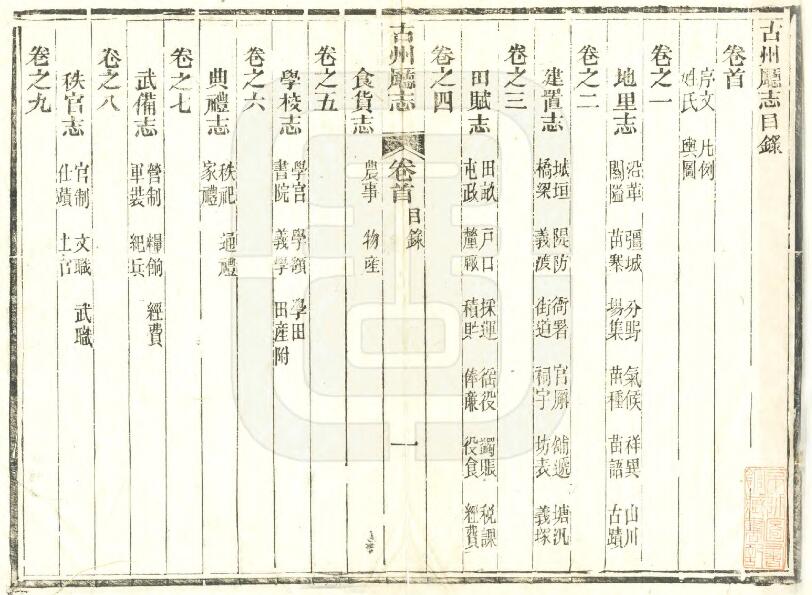 古州廳志目錄
卷首
序文 凡例
姓氏 輿圖
卷之一
地里志
沿革 疆域 分野 氣候 祥異 山川
關隘 苗寨 場集 苗種 苗語 古蹟
卷之二
建置志
城垣 隄防 衙署 官廨 舖遞 塘汛
橋梁 義渡 街道 祠宇 坊表 義塚
卷之三
田賦志
田畝 戶口 採運 徭役 蠲賑 稅課
屯政 釐 積貯 俸廉 役食 經費
卷之四
古州廳志 卷首 目錄 一
食貨志
農事 物産
卷之五
學校志
學宮 學額 學田
書院 義學 田産附
卷之六
典禮志
秩祀 通禮
家禮
卷之七
武備志
營制 糧餉 經費
軍裝 紀兵
卷之八
秩官志
官制 文職 武職
仕蹟 土官
卷之九